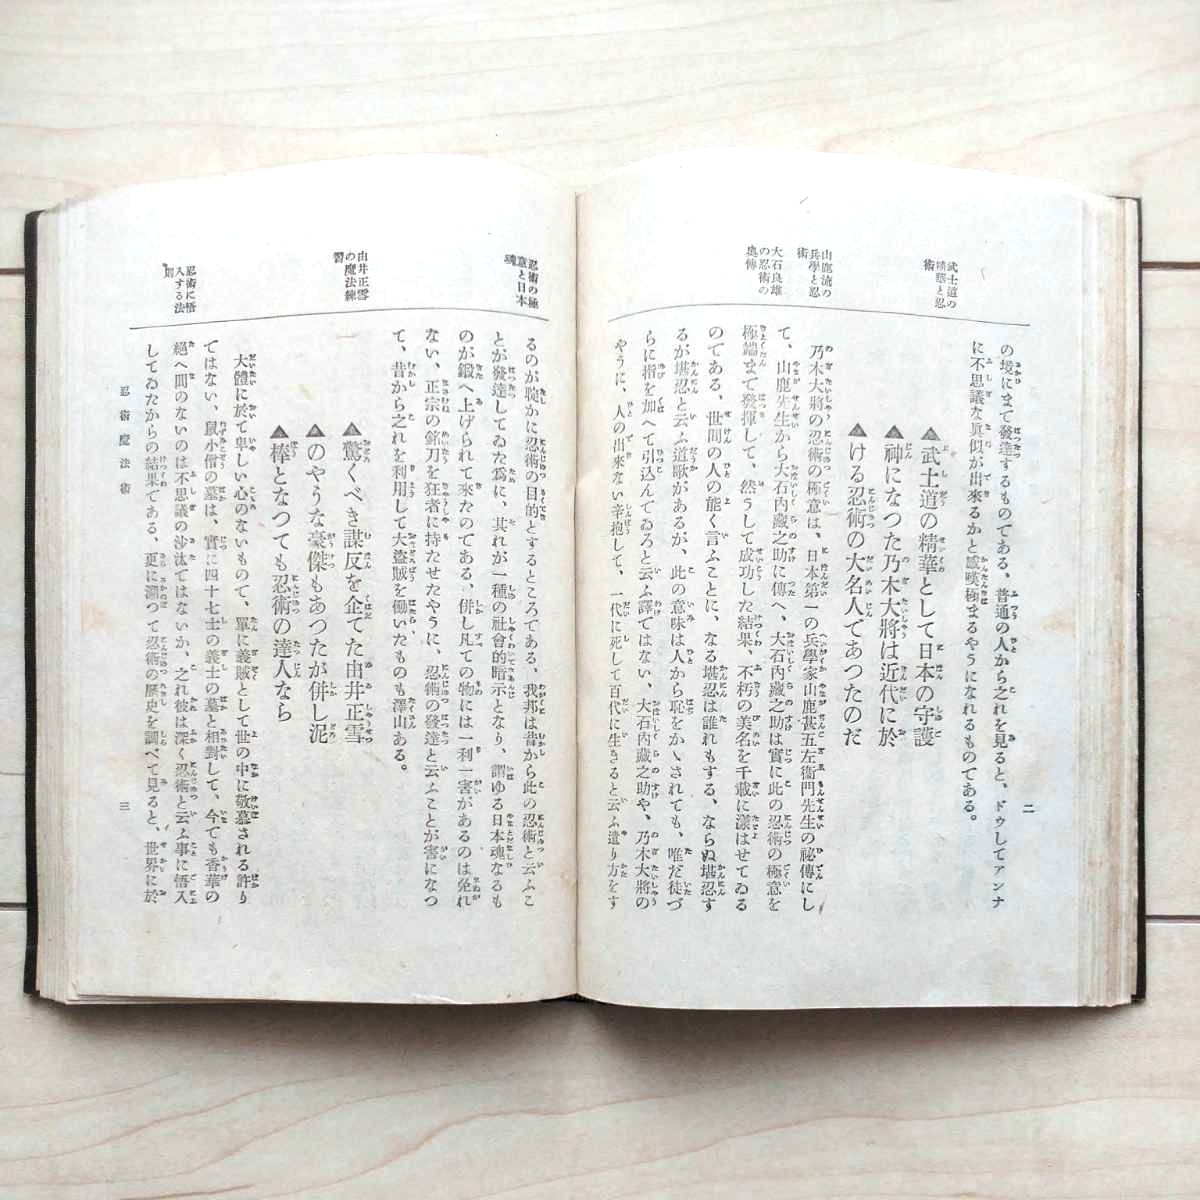 武士道の
精華と忍
術
山鹿流の
兵學と忍
術
大石良雄
の忍術の
奧傳
二
の境にまで發達するものである、普通の人から之れを見ると、ドウしてアンナ
に不思議な眞似が出來るかと感嘆極まるやうになれるものである。
▲武士道の精華として日本の守護
▲神になつた乃木大將は近代に於
▲ける忍術の大名人であつたのだ
乃木大將の忍術の極意は、日本第一の兵學家山鹿甚五左衞門先生の祕傳にし
て、山鹿先生から大石內藏之助に傳へ、大石內藏之助は實に此の忍術の極意を
極端まで發揮して、然うして成功した結果、不朽の美名を千載に漾はせてゐる
のである、世間の人の能く言ふことに、なる堪忍は誰れもする、ならぬ堪忍す
るが堪忍と云ふ道歌があるが、此の意味は人から恥をかゝされても、唯だ徒づ
らに指を加へて引込んでゐろと云ふ譯ではない、大石內藏之助や、乃木大將の
やうに、人の出來ない辛抱して、一代に死して百代に生きると云ふ遣り方をす
忍術の極
意と日本
魂
由井正雪
の魔法練
習
忍術に悟
入する法
則
るのが確かに忍術の目的とするところである、我邦は昔から此の忍術と云ふこ
とが發達してゐた爲に、其れが一種の社會的暗示となり、謂ゆる日本魂なるも
のが鍛へ上げられて來たのである、併し凡ての物には一利一害があるのは免れ
ない、正宗の銘刀を狂者に持たせたやうに、忍術の發達と云ふことが害になつ
て、昔から之れを利用して大盜賊を働いたものも澤山ある。
▲驚くべき謀反を企てた由井正雪
▲のやうな豪傑もあつたが併し泥
▲棒となつても忍術の達人なら
大體に於て卑しい心のないもので、單に義賊として世の中に敬慕される許り
ではない、鼠小僧の墓は、實に四十七士の義士の墓と相對して、今でも香華の
絕へ間のないのは不思議の沙汰ではないか、之れ彼は深く忍術と云ふ事に悟入
してゐたからの結果である、更に溯つて忍術の歷史を調べて見ると、世界に於
忍術魔法術
三